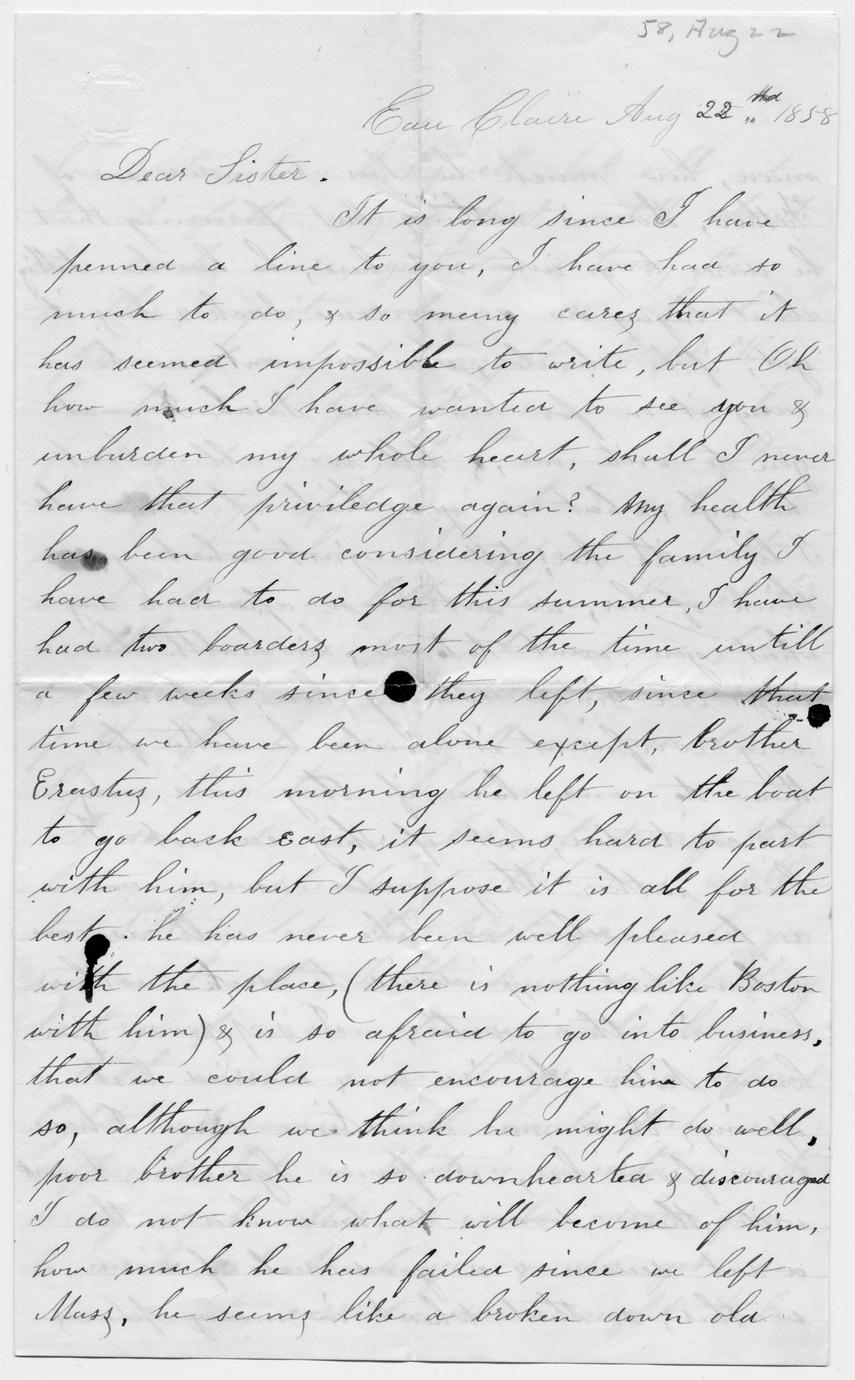 58, Aug 22
Eau Claire Aug 22nd 1858
Dear Sister.
It is long since I have
penned a line to you, I have had so
much to do, & so many cares that it
has seemed impossible to write, but Oh
how much I have wanted to see you &
unburden my whole heart, shall I never
have that priviledge again? My health
has been good considering the family I
have had to do for this summer, I have
had two boarders most of the time untill
a few weeks since they left, since that
time we have been alone except, brother
Erastus, this morning he left on the boat
to go back east, it seems hard to part
with him, but I suppose it is all for the
best. he has never been well pleased
with the place, (there is nothing like Boston
with him) & is so afraid to go into business,
that we could not encourage him to do
so, although we think he might do well,
poor brother he is so downhearted & discouraged
I do not know what will become of him,
how much he has failed since we left
Mass, he seems like a broken down old